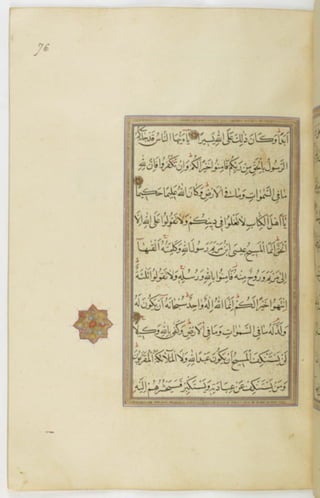 76
أبدا وكان ذلك على الله يسيرا يا أيها الناس قد جاءكم
الرسول بالحق من ربكم فآمنوا خيرا لكم وإن تكفروا فإن لله
ما في السموات وما في الأرض وكان الله عليما حكيما
يا أهل الكتاب لا تغلوا في دينكم ولا تقولوا على الله إلا
الحق إنما المسيح عيسى ابن مريم رسول الله وكلمته ألقاها
إلى مريم وروح منه فآمنوا بالله ورسله ولا تقولوا ثلثة
انتهوا خيرا لكم إنما الله إله واحد سبحانه أن يكون له
ولد له ما في السموات وما في الأرض وكفى بالله وكيلا
لن يستنكف المسيح أن يكون عبدا لله ولا الملائكة المقربون
ومن يستنكف عن عبادته ويستكبر فسيحشرهم إليه